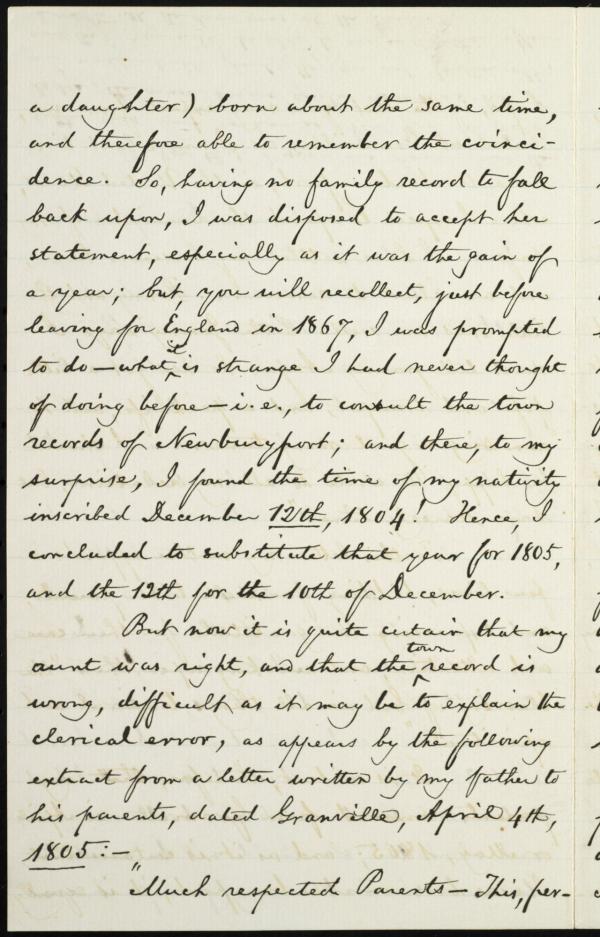 a daughter) born about the same time,
and therefore able to remember the coinci-
dence. So, having no family record to fall
back upon, I was disposed to accept her
statement, especially as it was the gain of
a year; but, you will recollect, just before
leaving for England in 1867, I was prompted
to do — what it is strange I had never thought
of doing before — i.e., to consult the town
records of Newburyport; and there, to my
surprise, I found the time of my nativity
inscribed December 12th, 1804! Hence, I
concluded to substitute that year for 1805,
and the 12th for the 10th of December.
But now it is quite certain that my
aunt was right, and that the town record is
wrong, difficult as it may be to explain the
clerical error, as appears by the following
extract from a letter written by my father to
his parents, dated Granville, April 4th,
1805:—
"Much respected Parents — This, per-